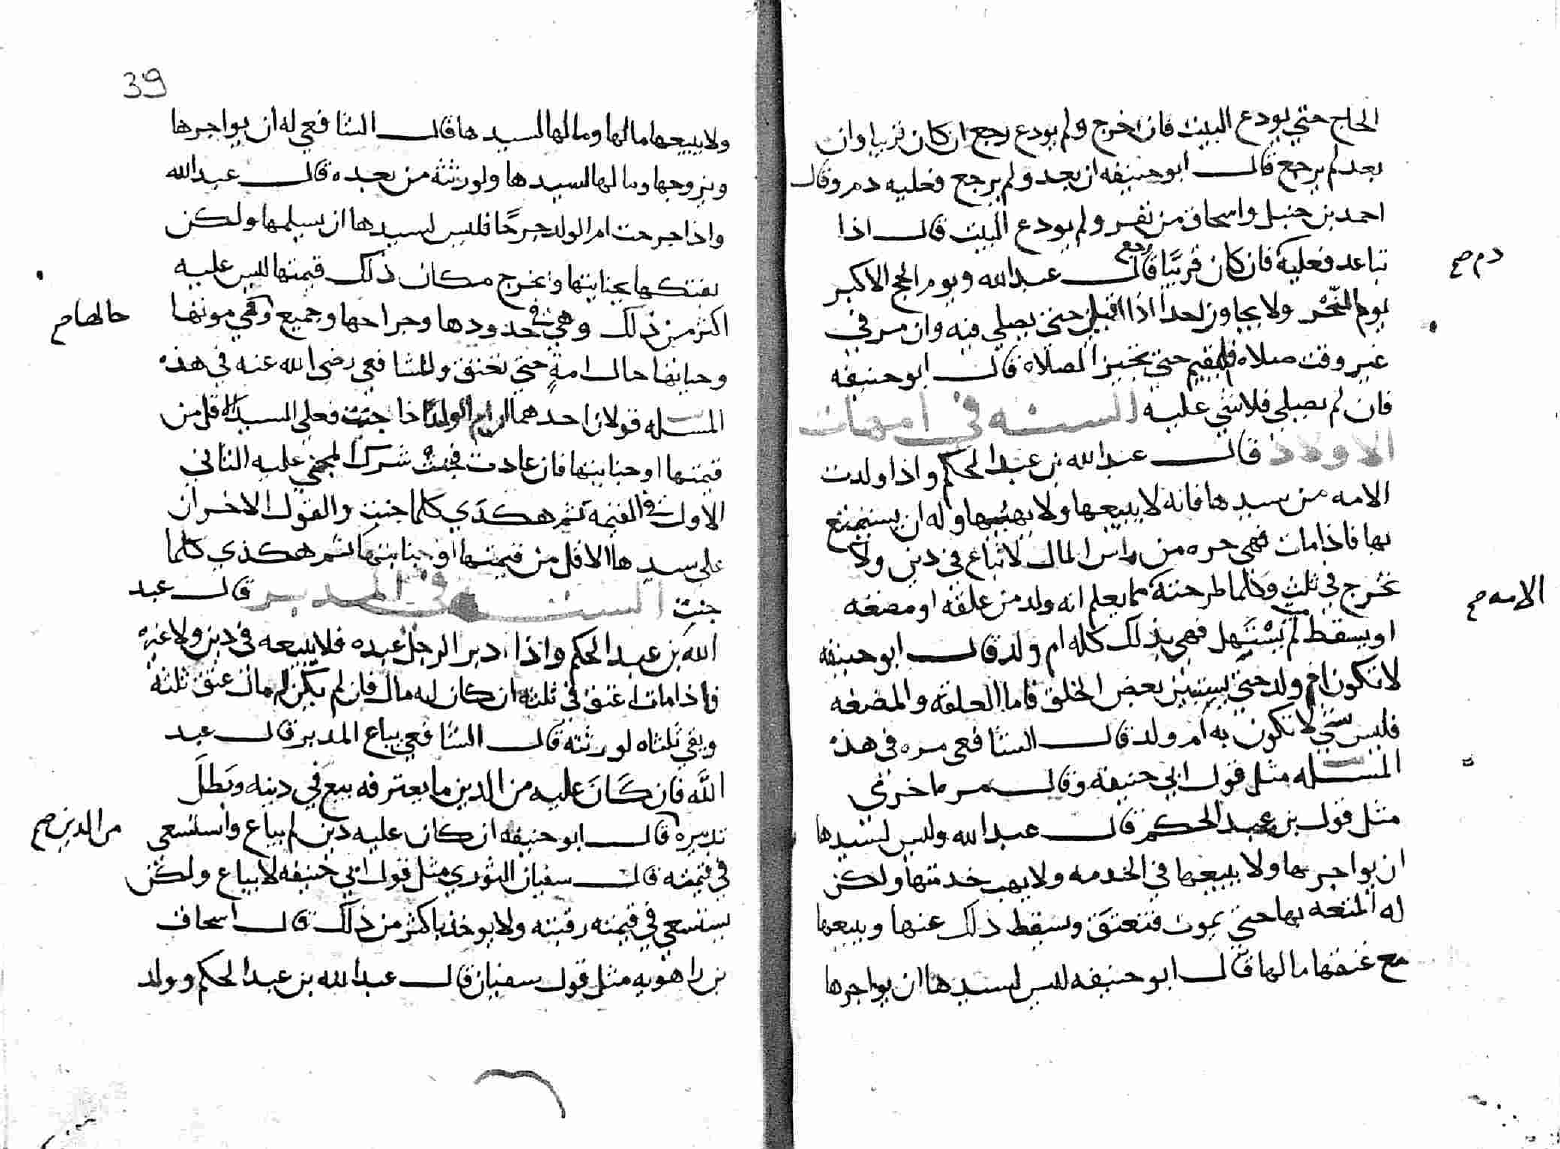 الحاج حتي يودع البيت فان خرج ولم يودع رجع ان كان قريبا وان
بعد لم يرجع قال ابو حنيفه ان بعد ولم يرجع فعليه دم وقال
احمد بن حنبل واسحاق من نفر ولم يودع البيت قال اذا
تباعد فعليه فان كان قريبًا رجع قال عبد الله ويوم الحج الاكبر
دم صح
يوم النحر ولا يجاوز احدا اذا اقبل حتي يصلي فيه وان مر في
غير وقت صلاه فليقيم حتي تحين الصلاه قال ابو حنيفه
فان لم يصلي فلا شي عليه السنه في امهات
الاولاد قال عبد الله بن عبد الحكم واذا ولدت
الامه من سيدها فانه لا يبيعها ولا يهبها وله ان يستمتع
بها فاذا مات فهي حره من راس المال لا تباع في دين ولا
تخرج في ثلث وكلما طرحته مما يعلم انه ولد من علقه او مضغه
الامه صح
او يسقط لم يستهل فهي بذلك كله ام ولد قال ابو حنيفه
لا تكون ام ولد حتي يستبين بعض الخلق فاما العلقه والمضغه
فليس شي لا تكون به ام ولد قال الشافعي مره في هذه
المسله مثل قول ابي حنيفه وقال مره اخري
مثل قول بن عبد الحكم قال عبد الله وليس لسيدها
ان يواجرها ولا يبيعها في الخدمه ولا يهب خدمتها ولكن
له المتعه بها حتي يموت فتعتق ويسقط ذلك عنها ويتبعها
مع عتقها مالها قال ابو حنيفه لليس لسيدها ان يواجرها
39
ولا يبيعها مالها وما لها لسيدها قال الشافعي له ان يواجرها
ويزوجها وما لها لسيدها ولورثته من بعده قال عبد الله
واذا جرحت ام الولد جرحًا فليس لسيدها ان يسلمها ولكن
يفتكها بجنايتها ويخرج مكان ذلك قيمتها لليس عليه
اكثر من ذلك وهي في حدودها وجراحها وجميع
حالها صح
وجنايتها حال امةٍ حتي تعتق وللشافعي رضي الله عنه في هذه
المسله قولان احدهما ان ام الولد اذا جنت فعلي السيد الاقل من
قيمتها او جنايتها فان عادت فجنت شرك المجني عليه الثاني
الاول في القيمه ثم هكذي كلما جنت والقول الاخر ان
علي سيدها الاقل من قيمتها او جنايتها ثم هكذي كلما
جنت السنه في المدبر قال عبد
الله بن عبد الحكم واذا دبر الرجل عبده فلا يبيعه في دين ولا غيره
فاذا مات اعتق في ثلثه ان كان له مال فان لم يكن له مال عتق ثلثه
وبقي ثلثاه لورثته قال الشافعي يباع المدبر قال عبد
الله فان كان عليه من الدين ما يعترفه بيع في دينه وبطل
تدبيره قال ابو حنيفه ان كان عليه دين لم يباع واستسعي
من الدين صح
في قيمته قال سفيان الثوري مثل قول ابي حنيفه لا يباع ولكن
يستسعي في قيمته رقبته ولا يوخذ باكثر من ذلك قال اسحاق
بن راهويه مثل قول سفيان قال عبد الله بن عبد الحكم وولد